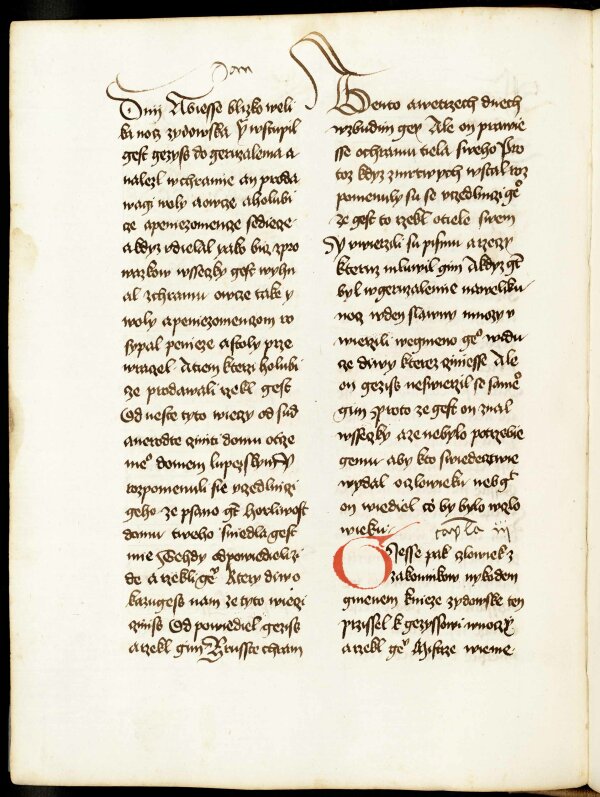 Jan
Dnij A biesse blizko weli
ka nocz zydowska y wstupil
gest gezyss do geruzalema a
nalezl w chramie an proda
wagi woly a owcze a holubi
cze a peniezomencze sediecze
a kdyz vdielal yako bicz z pro
wazkow wsseczky gest wyhn
al z chramu owcze take y
woly a peniezomenczom ro
sypal penieze a stoly prze
wraczel A tiem kterzi holubi
cze prodawali rzekl gest
Od neste tyto wieczy od sud
a nerodte cziniti domu otcze
me° domem lupezskym Y
rozpomenuli sie vczedlniczi
geho ze psano gt horliwost
domu tweho sniedla gest
mie Tehdy odpowiedieli zi
de a rzekli ge° Ktery diwo
kazugess nam ze tyto wieczi
czinss Od powiediel geziss
a rzekl gim Zrusste chram
Tento a we trzech dnech
wzbudim gey Ale on prawie
sse o chramu tiela sweho Pro
toz kdyz z mrtwych wstal roz
pomenuly su se vczedlniczi ge°
ze gest to rzekl o tiele swem
Y vwierzili su pismu a rzeczy
kteruz mluwil gim A kdyz gt
byl w geruzalemie na weliku
nocz w den slawny mnozy v
wierzili we gmeno ge° widu
cze diwy kterez cziniesse Ale
on geziss neswierzil se same°
gim Proto ze gest on znal
wsseczky a ze nebylo potrzebie
gemu aby kto swiedecztwie
wydal o czlowieku neb gt
on wiediel co by bylo w czlo
wieku
cap(la) iij
Biesse pak czlowiek z
zakonnikow nykodem
gmenem knieze zydowske ten
przissel k gezyssowi w noczy
a rzekl ge° Mistrze wieme